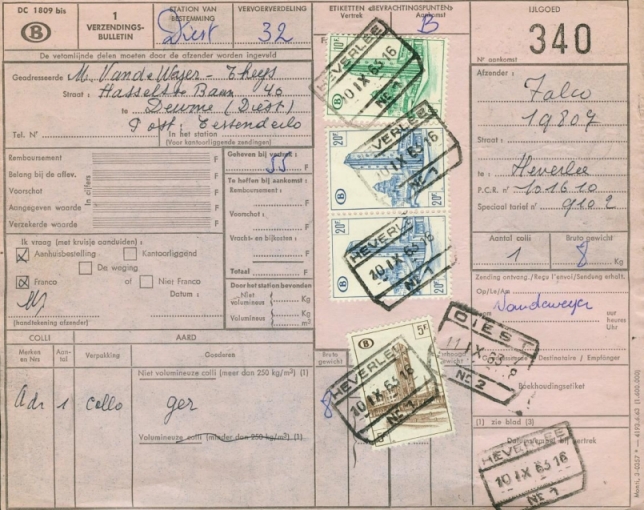 DC 1809 bis
B
1
VERZENDINGS-
BULLETIN
STATION VAN
BESTEMMING
Diest
VERVOERVERDELING
32
ETIKETTEN «BEVRACHTINGSPUNTEN»
Vertrek
Aankomst
B
IJLGOED
340
N° aankomst
De vetomlijnde delen moeten door de afzender worden ingevuld
Geadresseerde :
M. Van de Weyer - Theys
Straat :
Hasselt se Baan 46
te
Deurne (Diest)
Post. Tessenderlo
Tel. N°
In het station
(Voor kantoorliggende zendingen)
Afzender :
Falco
19807
Straat :
te :
Heverlee
P.C.R. n°
101610
Speciaal tarief n°
9102
Remboursement
F
Belang bij de aflev.
F
Voorschot
F
Aangegeven waarde
F
Verzekerde waarde
F
In cijfers
Geheven bij vertrek :
55
F
Te heffen bij aankomst :
Remboursement :
F
Voorschot :
F
Vracht- en bijkosten :
F
Totaal
F
Aantal colli
1
Bruto gewicht
8
Kg
Ik vraag (met kruisje aanduiden) :
Aanhuisbestelling
Kantoorliggend
De weging
Franco
of
Niet Franco
Datum :
(handtekening afzender)
Door het station bevonden
Niet
volumineus
Kg
Volumineus
Kg
m³
Zending ontvang./Reçu l'envoi/Sendung erhalt.
Op/Le/Am
Vandeweyer
uur
heures
Uhr
Destinataire / Empfänger
COLLI
AARD
Merken
en Nos
Aan-
tal
Verpakking
Goederen
Bruto
gewicht
Niet volumineuze colli (meer dan 250 kg/m³) (1)
Adr
1
collo
ger
8
Volumineuze colli (minder dan 250 kg/m³) (1)
Boekhoudingsetiket
(1) zie blad (3)
vertrek
10F
20F
20F
5F
B
HEVERLEE
10 IX 63 16
N° 1
HEVERLEE
10 IX 63 16
N° 1
HEVERLEE
10 IX 63 16
N° 1
HEVERLEE
10 IX 63 16
N° 1
DIEST
11 IX 63
N° 2
HEVERLEE
10 IX 63 16
N° 1